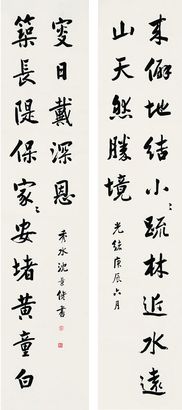 來僻地結小〻疏林近水遠
山天然勝境
光緒庚辰六月
築長隄保家〻安堵黃童白
叟日戴深恩
秀水沈景脩書